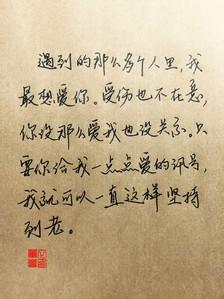 遇到的那么多个人里,我
最想爱你。受伤也不在意,
你没那么爱我也没关系。只
要你给我一点点爱的讯号,
我就可以一直这样坚持
到老。